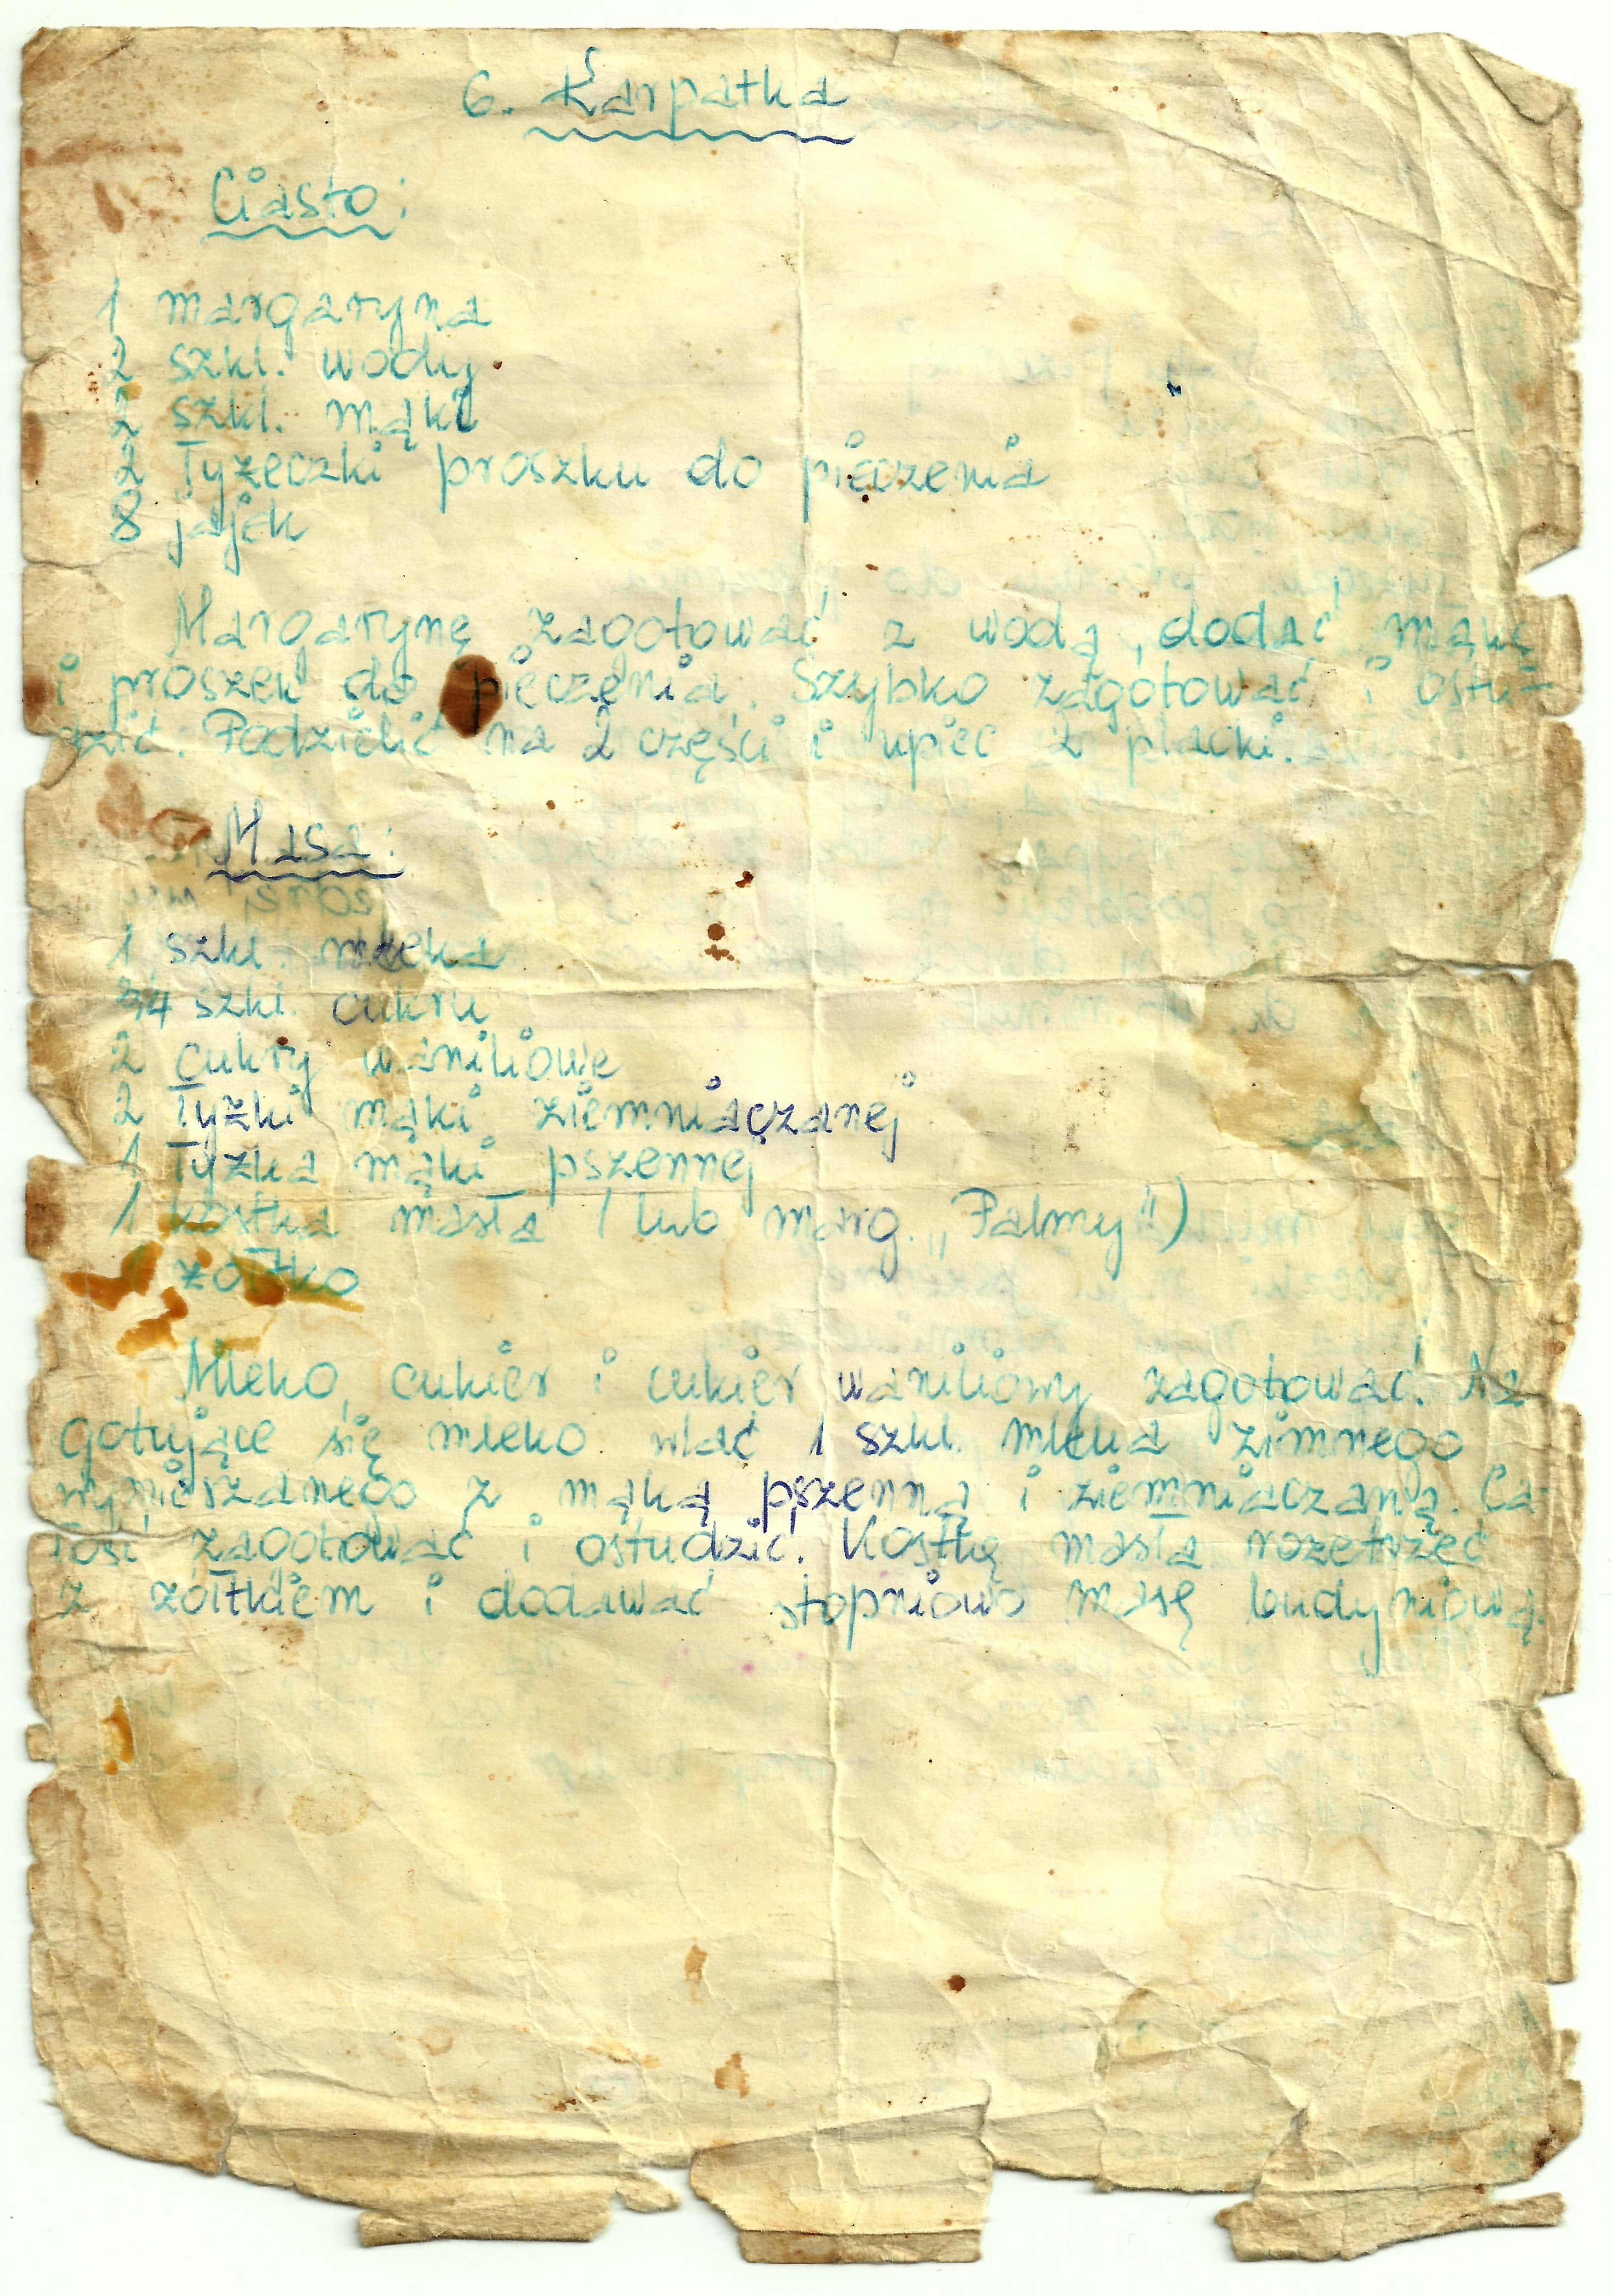 6. Karpatka
Ciasto:
1 margaryna
2 szkl. wody
2 szkl. mąki
2 łyżeczki proszku do pieczenia
8 jajek
Margarynę zagotować z wodą, dodać mąkę
i proszek do pieczenia. Szybko zagotować i ostu-
dzić. Podzielić na 2 części i upiec 2 placki.
Masa:
1 szkl. mleka
3/4 szkl. cukru
2 cukry waniliowe
2 łyżki mąki ziemniaczanej
1 łyżka mąki pszennej
1 kostka masła (lub marg. „Palmy")
1 żółtko
Mleko, cukier i cukier waniliowy zagotować. Na
gotujące się mleko wlać 1 szkl. mleka zimnego
wymieszanego z mąką pszenną i ziemniaczaną. Ca-
łość zagotować i ostudzić. Kostkę masła rozetrzeć
z żółtkiem i dodawać stopniowo masę budyniową.